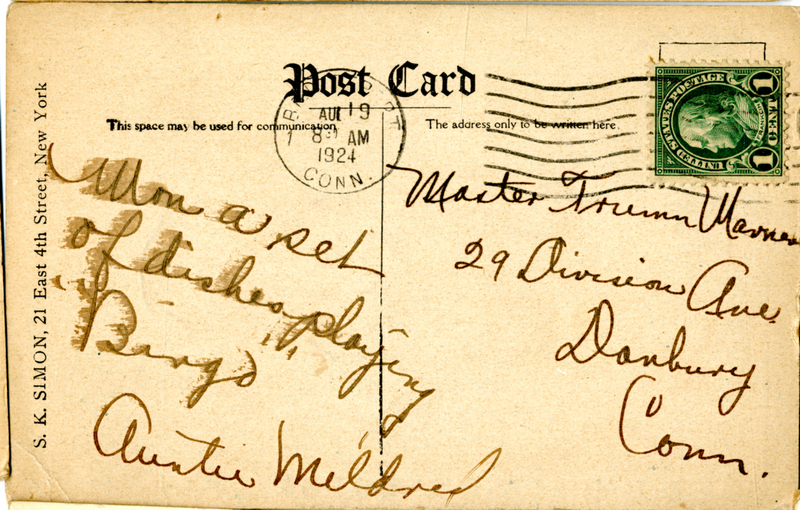 Post Card
This space may be used for communication
The address only to be written here.
AUG 19
8 AM
1924
CONN.
UNITED STATES POSTAGE
1 CENT 1
S. K. SIMON, 21 East 4th Street, New York
Won a set
of dishes playing
"Bingo"
Auntie Mildred
Master Truman Warner
29 Division Ave.
Danbury
Conn.